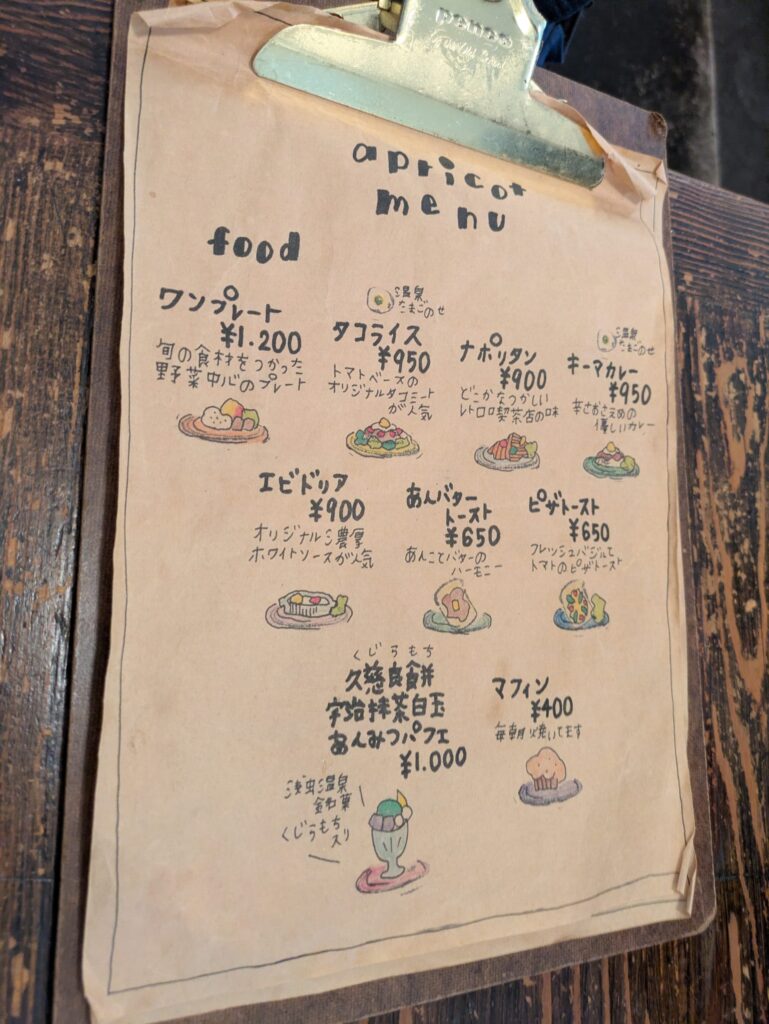 penco
apricot
menu
food
ワンプレート
¥1.200
旬の食材をつかった
野菜中心のプレート
温泉
たまごのせ
タコライス
¥950
トマトベースの
オリジナルタコミート
が人気
ナポリタン
¥900
どこかなつかしい
レトロロ喫茶店の味
温泉
たまごのせ
キーマカレー
¥950
辛さおさえめの
優しいカレー
エビドリア
¥900
オリジナル濃厚
ホワイトソースが人気
あんバター
トースト
¥650
あんことバターの
ハーモニー
ピザトースト
¥650
フレッシュバジルと
トマトのピザトースト
くじらもち
久慈良餅
宇治抹茶白玉
あんみつパフェ
¥1.000
浅虫温泉
銘菓
くじらもち
入り
マフィン
¥400
毎朝焼いてます